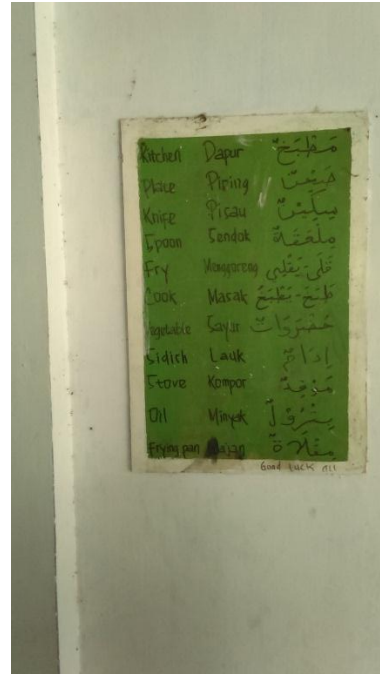 Kitchen Dapur مَطْبَخٌ
Place Piring صَحْنٌ
Knife Pisau سِكِّيْنٌ
Spoon Sendok مِلْعَقَةٌ
Fry Menggoreng قَلَى-يَقْلِي
Cook Masak طَبَخَ-يَطْبَخُ
Vegetable Sayur خَضْرَوَاتٌ
Sidich Lauk إِدَامٌ
Stove Kompor مَوْقِدٌ
Oil Minyak بِتْرُوْلٌ
Frying pan Wajan مِقْلَاةٌ
Good Luck All